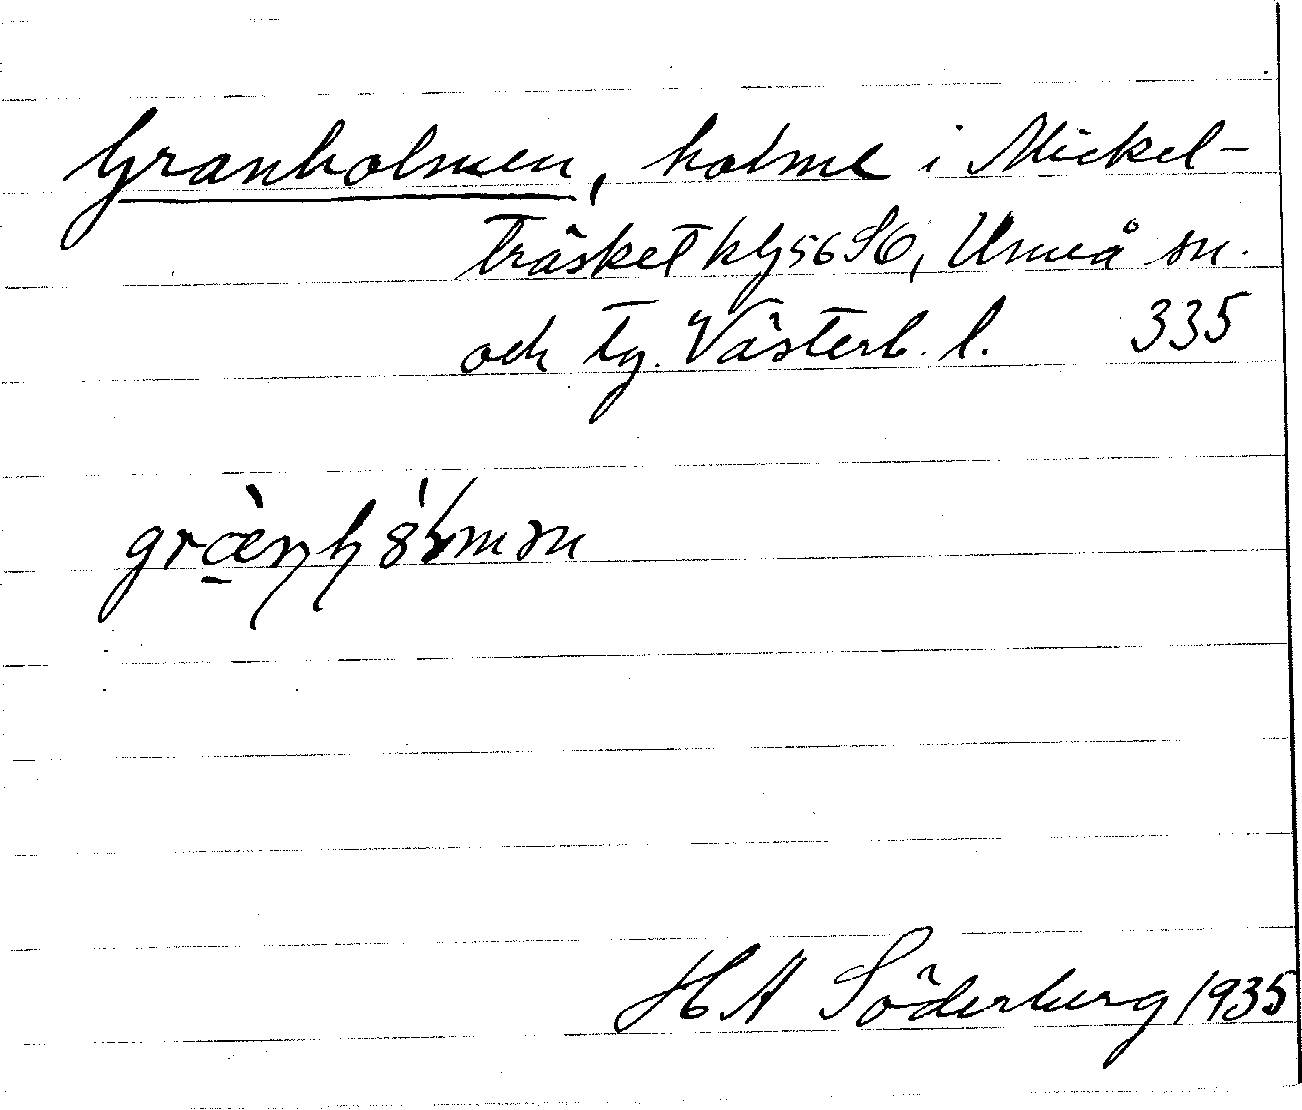 Granholmen, holme i Mickel-
träsket kbj 56 SO, Umeå sn.
och tg. Västerb. l. 335
H A Söderberg 1935